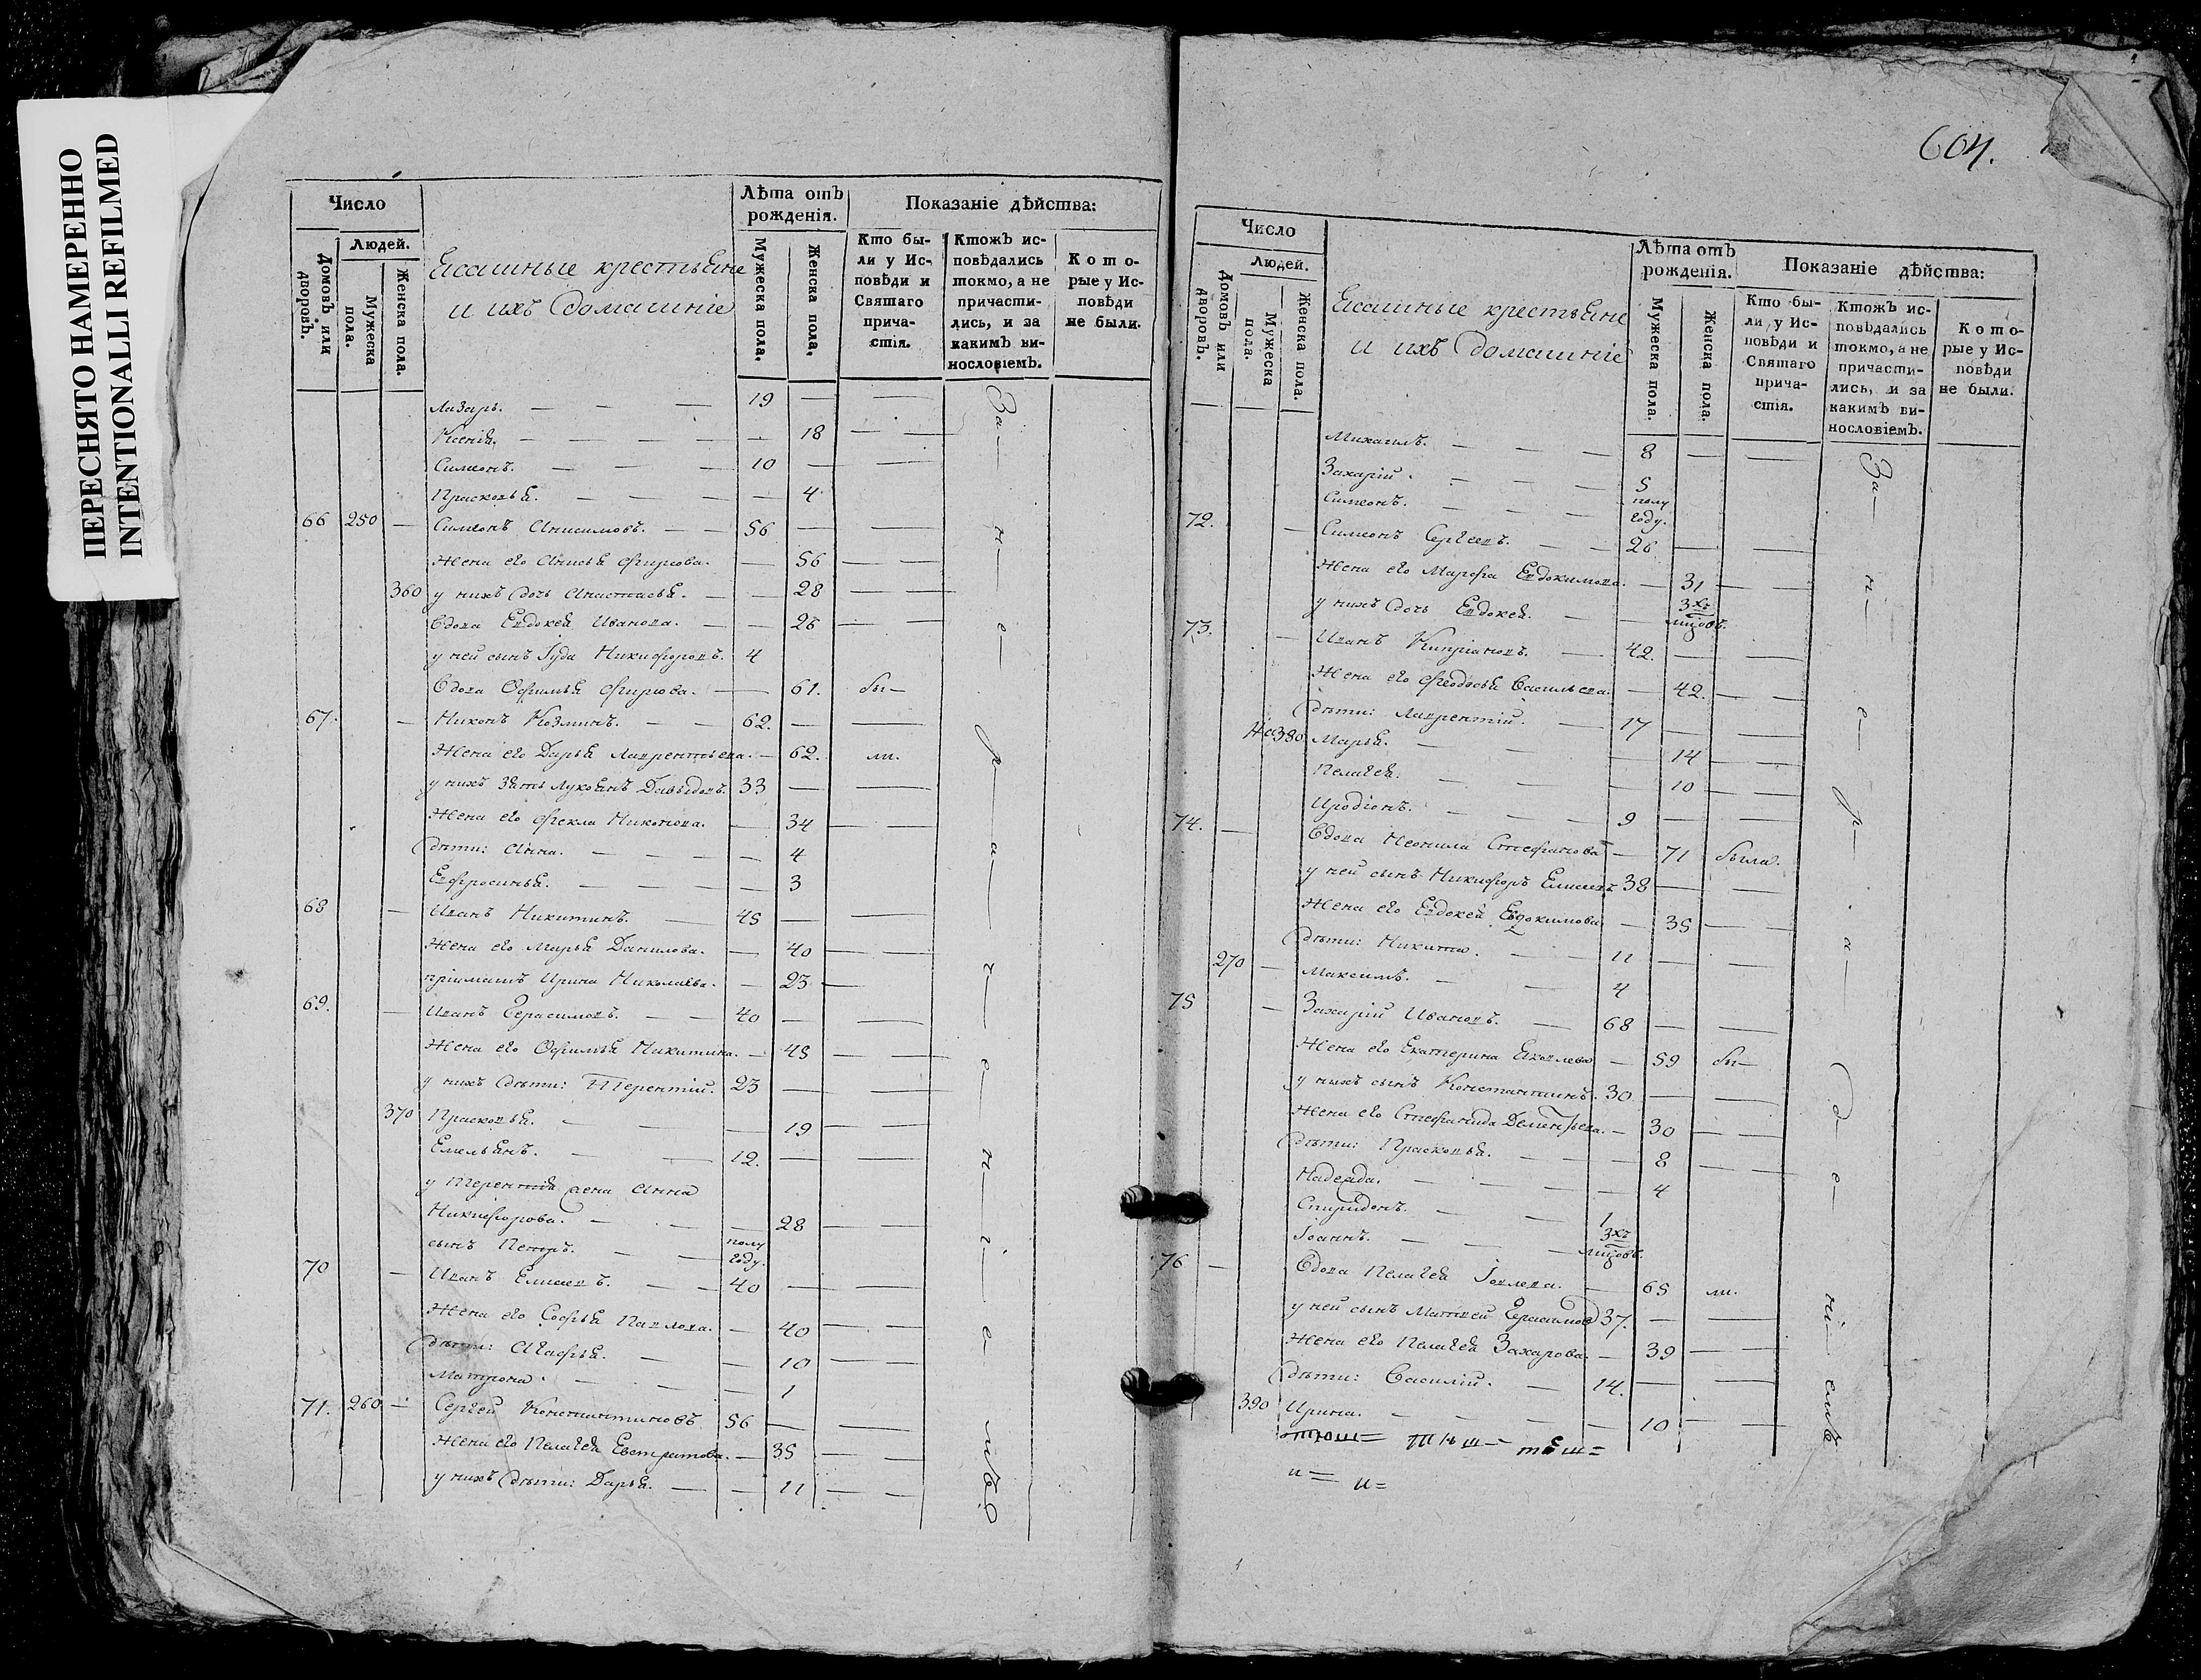 ПЕРЕСНЯТО НАМЕРЕННО
INTENTIONALLI REFILMED
Число
Людей.
Домовъ или дворовъ.
Мужеска пола.
Женска пола.
Ясашные крестьяне
и ихъ домашніе
Лѣта отъ рожденія.
Мужеска пола.
Женска пола.
Показаніе дѣйства:
Кто были у Исповѣди и Святаго причастія.
Ктожъ исповѣдались токмо, а не причастились, и за какимъ винословіемъ.
Которые у Исповѣди не были.
Лазарь. 19
Ксенія. 18
Симеонъ. 10
Прасковья. 4
66 250 Симеонъ Анисимовъ. 56
Жена его Анисья Фирсова. 56
360 у нихъ дочь Анастасья. 28
Вдова Евдокея Иванова. 26
у ней сынъ Іуда Никифоровъ. 4
Вдова Офимья Фирсова. 61. бы
67. Никонъ Козминъ. 62.
Жена его Дарья Лаврентьева. 62. ли.
у нихъ зять Лукоянъ Давыдовъ. 33
Жена его Фекла Никонова. 34
дѣти: Анна. 4
Евфросинья. 3
68 Иванъ Никитинъ. 45
Жена его Марья Данилова. 40
пріимышъ Ирина Николаева. 23
69. Иванъ Герасимовъ. 40
Жена его Офимья Никитина. 45
у нихъ дѣти: Терентій. 23
370 Прасковья. 19
Емельянъ. 12.
у Терентія жена Анна
Никифорова. 28
сынъ Петръ. полу году.
70 Иванъ Елисеевъ. 40
Жена его Софья Павлова. 40
дѣти: Агафья. 10
Матрона. 1
71. 260 Сергей Константиновъ 56
Жена его Пелагея Евстратова. 35
у нихъ дѣти: Дарья. 11
За не ра че ні е мъ
604.
Число
Людей.
Домовъ или дворовъ.
Мужеска пола.
Женска пола.
Ясашные крестьяне
и ихъ домашніе
Лѣта отъ рожденія.
Мужеска пола.
Женска пола.
Показаніе дѣйства:
Кто были у Исповѣди и Святаго причастія.
Ктожъ исповѣдались токмо, а не причастились, и за какимъ винословіемъ.
Которые у Исповѣди не были.
Михаилъ. 8
Захарій. 5
Симеонъ. полу году.
72. Симеонъ Сергеевъ. 26
Жена его Марфа Евдокимова. 31
у нихъ дочь Евдокея. 3хъ
73. Иванъ Кипріановъ. 42.
Жена его Феодосья Васильева. 42.
дѣти: Лаврентій. 17
380 Марья. 14
Пелагея. 10
Иродіонъ. 9
74. Вдова Неонила Стефанова 71 была.
у ней сынъ Никифоръ Елисеевъ 38
Жена его Евдокея Евдокимова 35
дѣти: Никита. 11
270 Максимъ. 4
75 Захарій Ивановъ. 68
Жена его Екатерина Яковлева 59 бы
у нихъ сынъ Константинъ. 30
Жена его Стефанида Дементьева. 30
дѣти: Прасковья. 8
Надежда. 4
Спиридонъ. 1
Іоаннъ. 3хъ
76 Вдова Пелагея Іовлева. 65 ли.
у ней сынъ Матвей Герасимов 37.
Жена его Пелагея Захарова. 39
дѣти: Василій. 14.
390 Ирина. 10